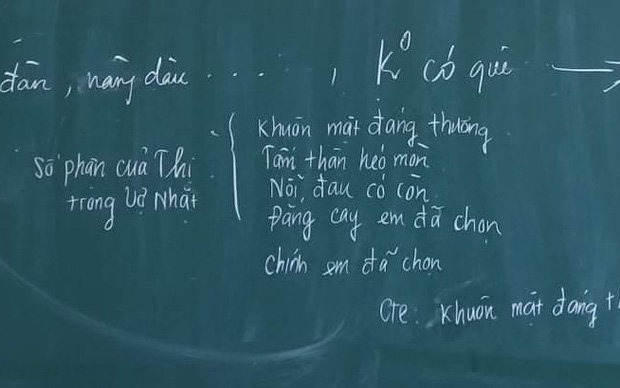 đàn, nàng dâu . . . . , K⁰ có quê →
Số phận của Thị trong Vợ Nhặt
Khuôn mặt đáng thương
Tâm thần héo mòn
Nỗi, đau có còn
Đắng cay em đã chọn
chính em đã chọn
Cte: Khuôn mặt đáng t